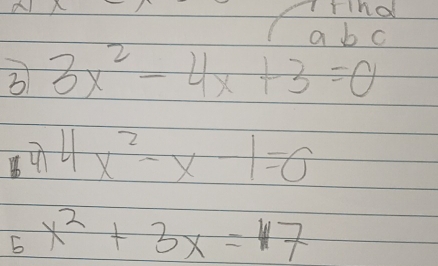 find
a b c
3) 3x² - 4x + 3 = 0
4) 4x² - x - 1 = 0
5 x² + 3x = 7